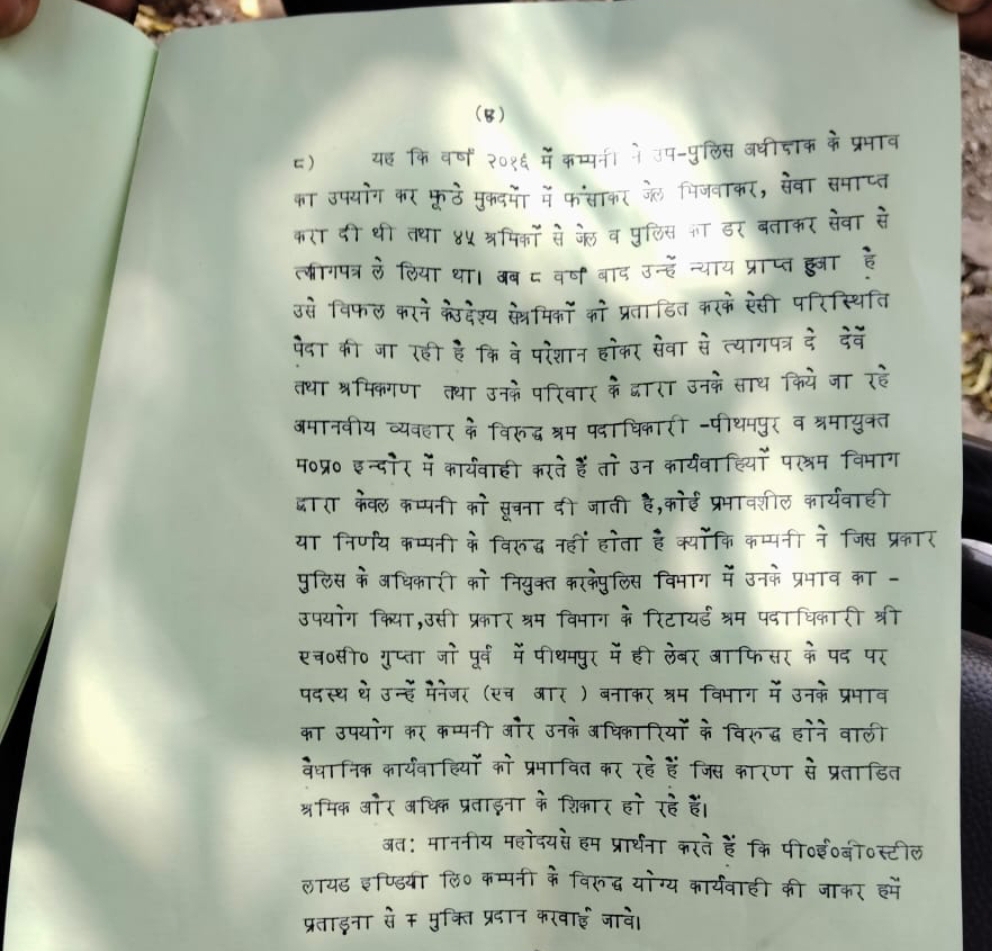 (8)
८) यह कि वर्ष २०१६ में कम्पनी ने उप-पुलिस अधीक्षक के प्रभाव
का उपयोग कर झूठे मुकदमों में फंसाकर जेल भिजवाकर, सेवा समाप्त
करा दी थी तथा ४५ श्रमिकों से जेल व पुलिस का डर बताकर सेवा से
त्यागपत्र ले लिया था। अब ८ वर्ष बाद उन्हें न्याय प्राप्त हुआ है
उसे विफल करने केउद्देश्य सेश्रमिकों को प्रताडित करके ऐसी परिस्थिति
पैदा की जा रही है कि वे परेशान होकर सेवा से त्यागपत्र दे देवें
तथा श्रमिकगण तथा उनके परिवार के द्वारा उनके साथ किये जा रहे
अमानवीय व्यवहार के विरुद्ध श्रम पदाधिकारी -पीथमपुर व श्रमायुक्त
म०प्र० इन्दौर में कार्यवाही करते हैं तो उन कार्यवाहियों परश्रम विभाग
द्वारा केवल कम्पनी को सूचना दी जाती है,कोई प्रभावशील कार्यवाही
या निर्णय कम्पनी के विरुद्ध नहीं होता है क्योंकि कम्पनी ने जिस प्रकार
पुलिस के अधिकारी को नियुक्त करकेपुलिस विभाग में उनके प्रभाव का -
उपयोग किया,उसी प्रकार श्रम विभाग के रिटायर्ड श्रम पदाधिकारी श्री
एच०सी० गुप्ता जो पूर्व में पीथमपुर में ही लेबर आफिसर के पद पर
पदस्थ थे उन्हें मैनेजर (एच आर ) बनाकर श्रम विभाग में उनके प्रभाव
का उपयोग कर कम्पनी और उनके अधिकारियों के विरुद्ध होने वाली
वैधानिक कार्यवाहियों को प्रभावित कर रहे हैं जिस कारण से प्रताडित
श्रमिक और अधिक प्रताड़ना के शिकार हो रहे हैं।
अत: माननीय महोदयसे हम प्रार्थना करते हैं कि पी०ई०बी०स्टील
लायड इण्डिया लि० कम्पनी के विरुद्ध योग्य कार्यवाही की जाकर हमें
प्रताड़ना से मुक्ति प्रदान करवाई जावे।